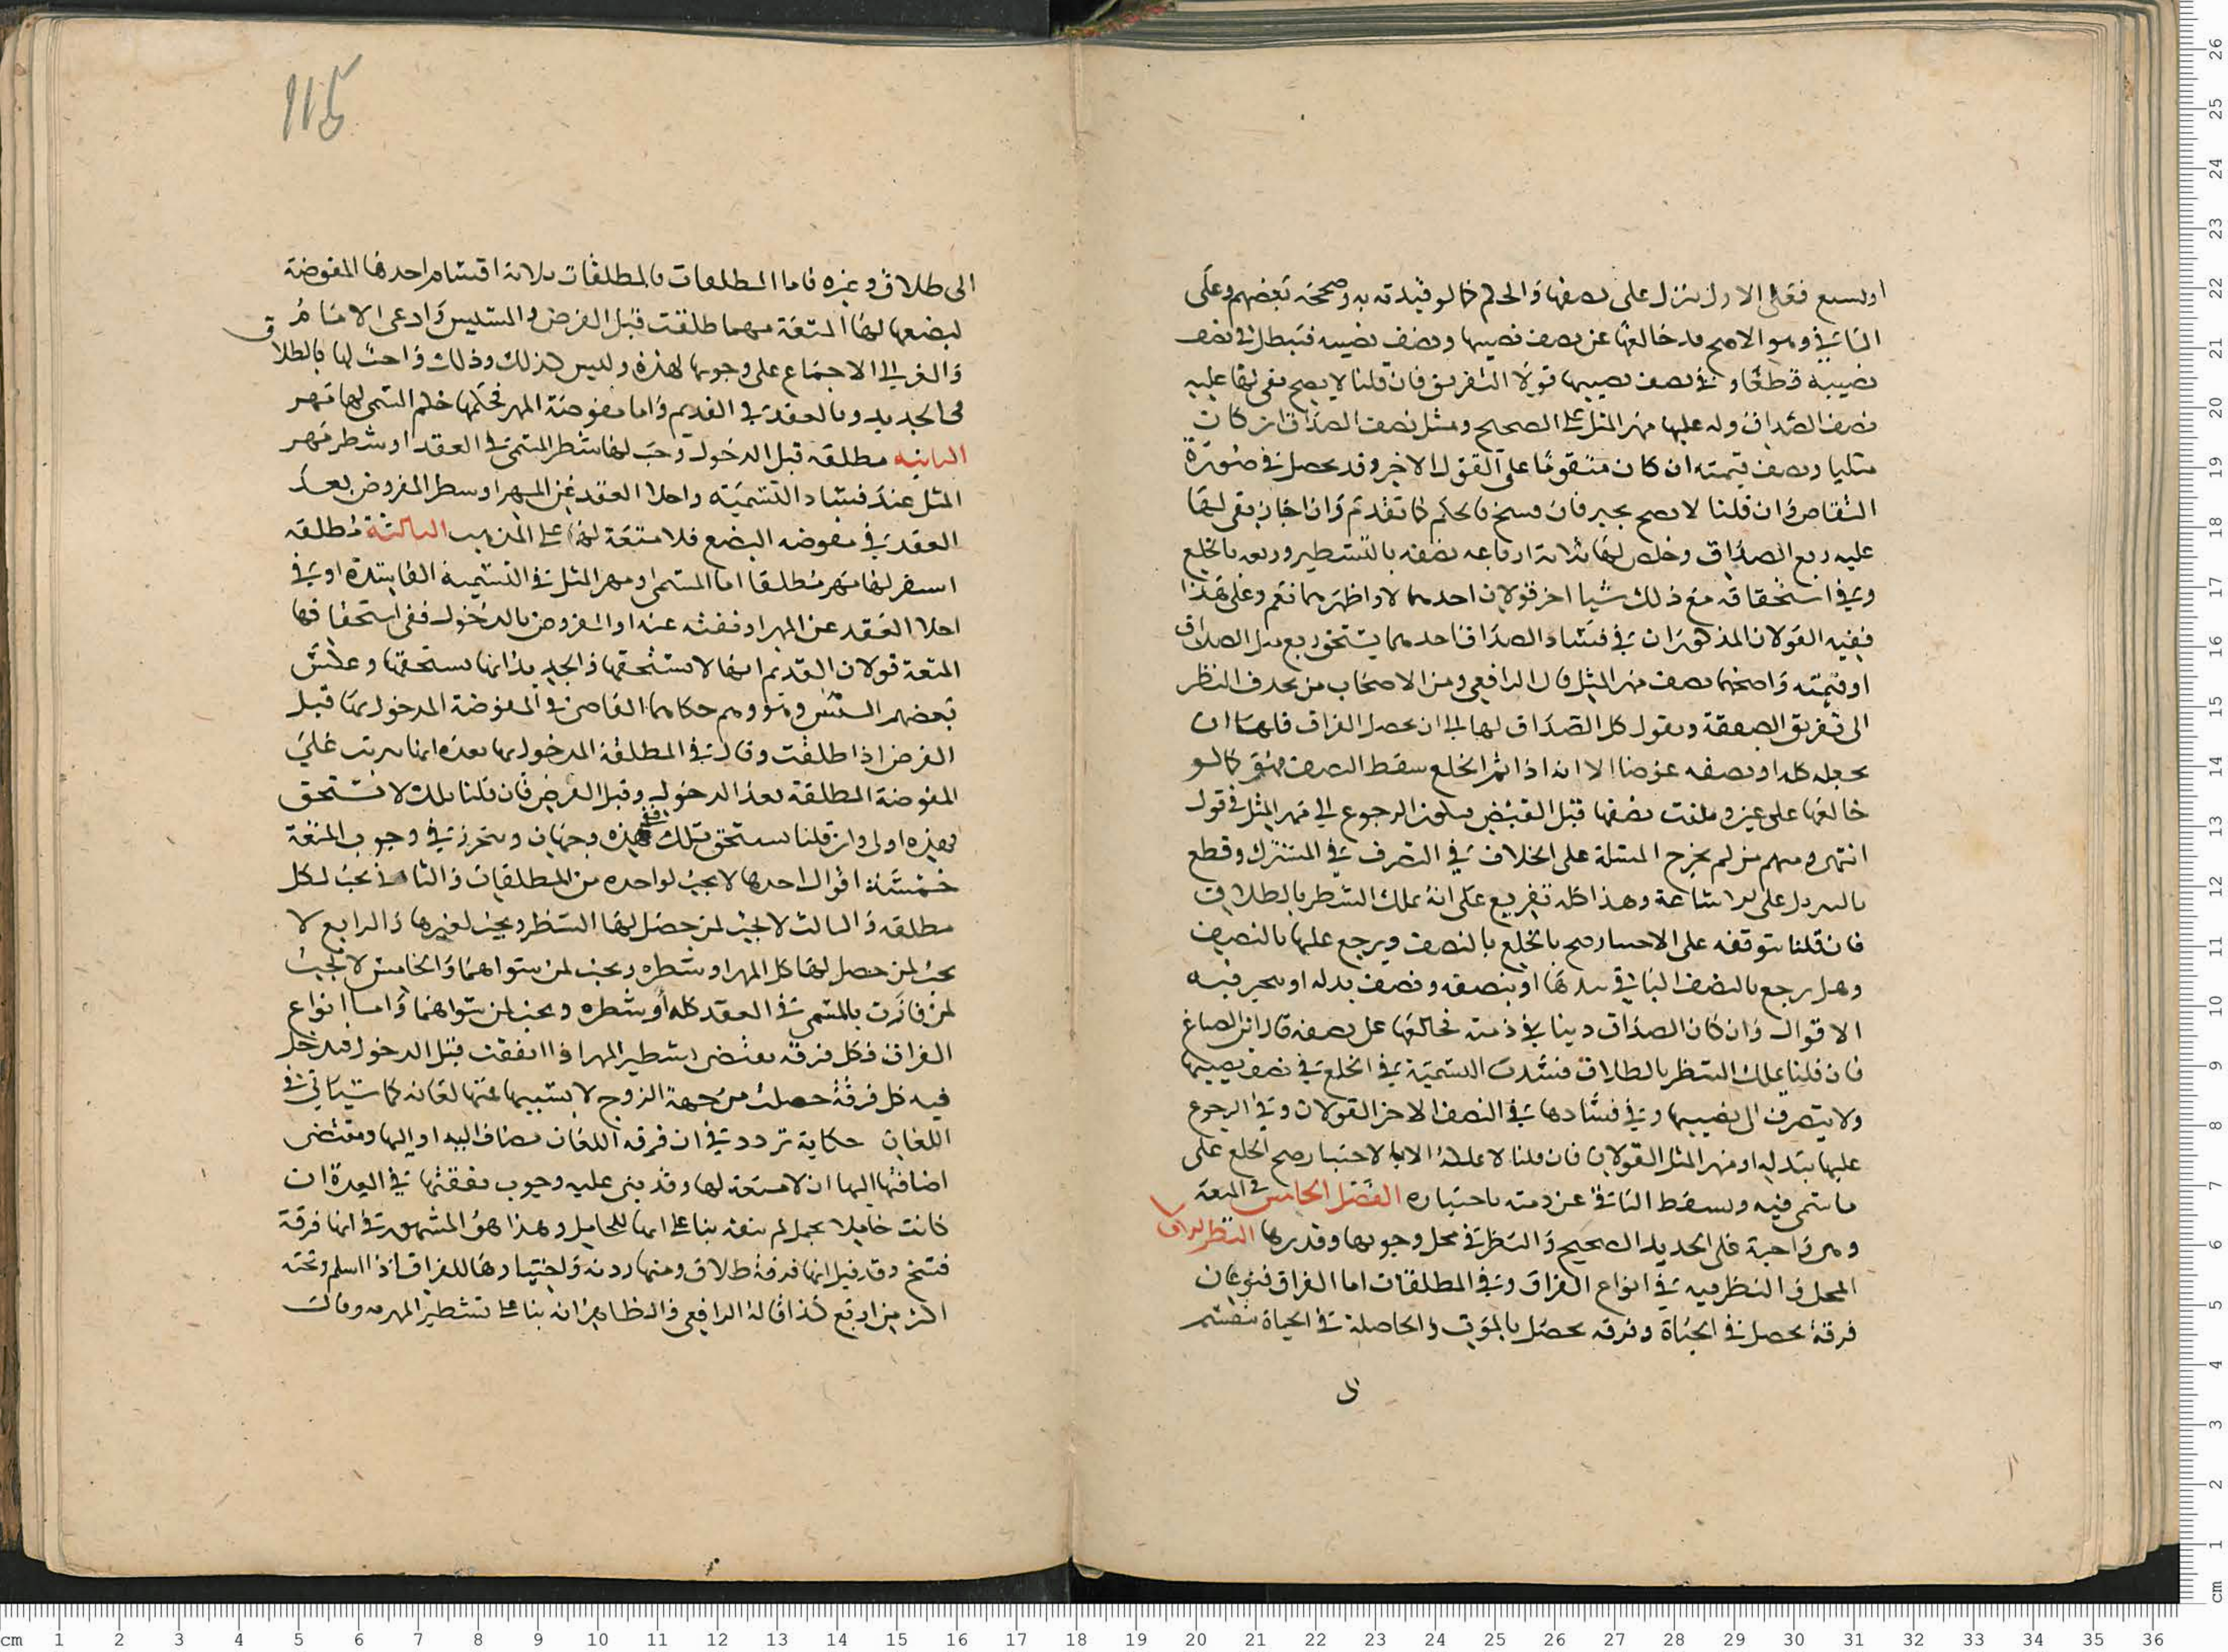 او لسبع فعلى الاول ينزل على نصفها والحكم كما لو قيدته به وصححه بعضهم وعلى
الثاني وهو الاصح قد خالعها عن نصف نصيبها ونصف نصيبه فتبطل في نصف
نصيبه قطعا وفي نصف نصيبها قولا التفريق فان قلنا لا يصح بقي لها عليه
نصف الصداق وله عليها مهر المثل على الصحيح ومثل نصف الصداق ان كان
مثليا ونصف قيمته ان كان متقوما على القول الاخر وقد يحصل في صورة
التقاص وان قلنا لا يصح يجبر فان فسخ فالحكم كما تقدم وان اجاز بقي لها
عليه ربع الصداق وخلص لها ثلاثة ارباعه نصفه بالتشطير وربعه بالخلع
وفي استحقاقه مع ذلك شيا اخر قولان احدهما لا واظهرهما نعم وعلى هذا
ففيه القولان المذكوران في فساد الصداق احدهما يستحق ربع بدل الصداق
او قيمته واصحهما نصف مهر المثل قال الرافعي ومن الاصحاب من يحذف النظر
الى تفريق الصفقة ويقول كل الصداق لها الى ان يحصل الفراق فلها ان
تجعله كله او نصفه عوضا الا انه اذا تم الخلع سقط النصف فهو كما لو
خالعها على عين وتلفت نصفها قبل القبض فيكون الرجوع الى مهر المثل في قول
انتهى ومنهم من لم يخرج المسئلة على الخلاف في التصرف في المشترك وقطع
بالتنزيل على الاشاعة وهذا كله تفريع على انه يملك الشطر بالطلاق
فان قلنا بتوقفه على الاختيار صح بالخلع بالنصف ويرجع عليها بالنصف
وهل يرجع بالنصف الباقي بيدها او بنصفه ونصف بدله او يخير فيه
الاقوال وان كان الصداق دينا في ذمته فخالعها على نصفه قال ابن الصباغ
فان قلنا يملك الشطر بالطلاق فسدت التسمية في الخلع في نصف نصيبها
ولا يتصرف الى نصيبها وفي فسادها في النصف الاخر القولان وفي الرجوع
عليها ببدله او مهر المثل القولان فان قلنا لا يملك الا بالاختيار صح الخلع على
ما سمى فيه ويسقط الباقي عن ذمته باختياره الفصل الخامس في المتعة
وهي واجبة على الجديد الصحيح والنظر في محل وجوبها وقدرها النظر الاول
المحل والنظر فيه في انواع الفراق وفي المطلقات اما الفراق فنوعان
فرقة تحصل في الحياة وفرقة تحصل بالموت والحاصلة في الحياة تنقسم
الى
115
الى طلاق وغيره فاما المطلقات فالمطلقات ثلاثة اقسام احدها المفوضة
لبضعها لها المتعة مهما طلقت قبل الفرض والمسيس وادعى الامام
والغزالي الاجماع على وجوبها لهذه وليس كذلك وذلك واجب لها بالطلاق
في الجديد وبالعقد في القديم واما مفوضة المهر فحكمها حكم المسمى لها مهر
الثانية مطلقة قبل الدخول وجب لها شطر المسمى في العقد او شطر مهر
المثل عند فساد التسمية واخلا العقد عن المهر او شطر المفروض بعد
العقد في مفوضه البضع فلا متعة لها على المذهب الثالثة مطلقه
استقر لها مهر مطلقا اما المسمى او مهر المثل في التسمية الفاسدة او في
اخلا العقد عن المهر او نفيه عنه او المفروض بالدخول ففي استحقاقها
المتعة قولان القديم انها لا تستحقها والجديد انها تستحقها وعكس
بعضهم النقل وهو وهم حكاهما القاضي في المفوضة المدخول بها قبل
الفرض اذا طلقت وقال في المطلقة المدخول بها بعده انها يترتب على
المفوضة المطلقة بعد الدخول وقبل الفرض فان قلنا تلك لا تستحق
فهذه اولى وان قلنا تستحق تلك ففي هذه وجهان ويتحرر في وجوب المتعة
خمسة اقوال احدها لا تجب لواحدة من المطلقات والثاني تجب لكل
مطلقه والثالث لا تجب لمن حصل لها الشطر وتجب لغيرها والرابع لا
تجب لمن حصل لها كل المهر او شطره وتجب لمن سواهما والخامس لا تجب
لمن فازت بالمسمى في العقد كله او شطره وتجب لمن سواهما واما انواع
الفراق فكل فرقة تقتضي تشطير المهر اذا اتفقت قبل الدخول فيدخل
فيه كل فرقة حصلت من جهة الزوج لا بسببها فمنها لعانه كما سياتي في
اللعان حكاية تردد في ان فرقه اللعان تضاف اليه او اليها ومقتضى
اضافتها اليها ان لا متعة لها وقد بنى عليه وجوب نفقتها في العدة ان
كانت حاملا بحمل لم ينفه بنا على انها للحامل وهذا هو المشهور في انها فرقة
فسخ وقد قيل انها فرقة طلاق ومنها ردته واختيارها للفراق اذا اسلم وتحته
اكثر من اربع كذا قاله الرافعي والظاهر انه بنا على تشطير المهر به وقال